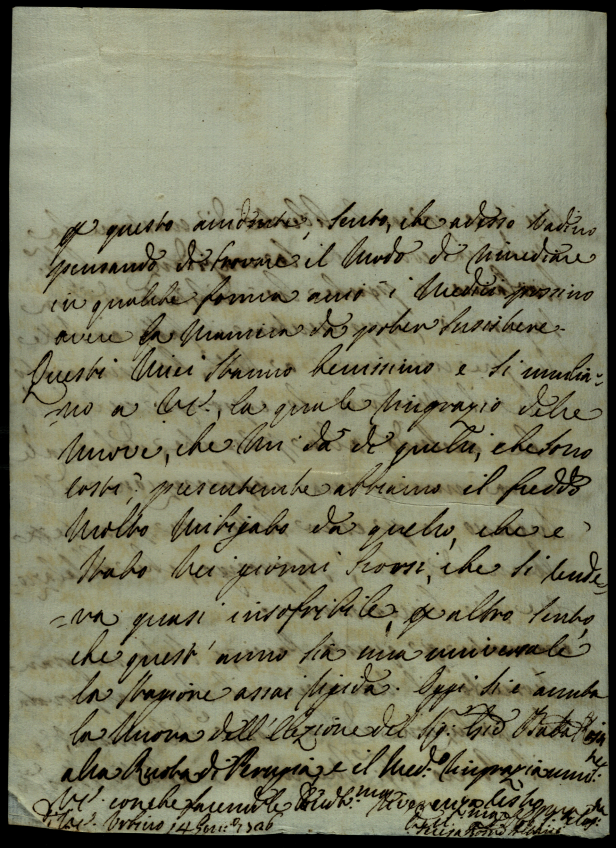 questo andante, sento, che adesso vadino
pensando di trovare il modo di rimediare
in qualche forma acciò i Medici possino
avere la maniera da poter sussistere.
Questi miei stanno benissimo e si umilia=
=no a VS., la quale ringrazio delle
nuove, che mi dà di quelli, che sono
costì; presentemente abbiamo il freddo
molto mitigato da quello, che è
stato nei giorni scorsi, che si rende=
=va quasi insofribile, altro sento,
che quest' anno sia una universale
la stagione assai rigida. Oggi si è avuta
la nuova dell'elezione del Sig.
alla Ruota di Perugia, e il Med.o ringrazia
VS. con che facendole riverenza resto
Urbino 4